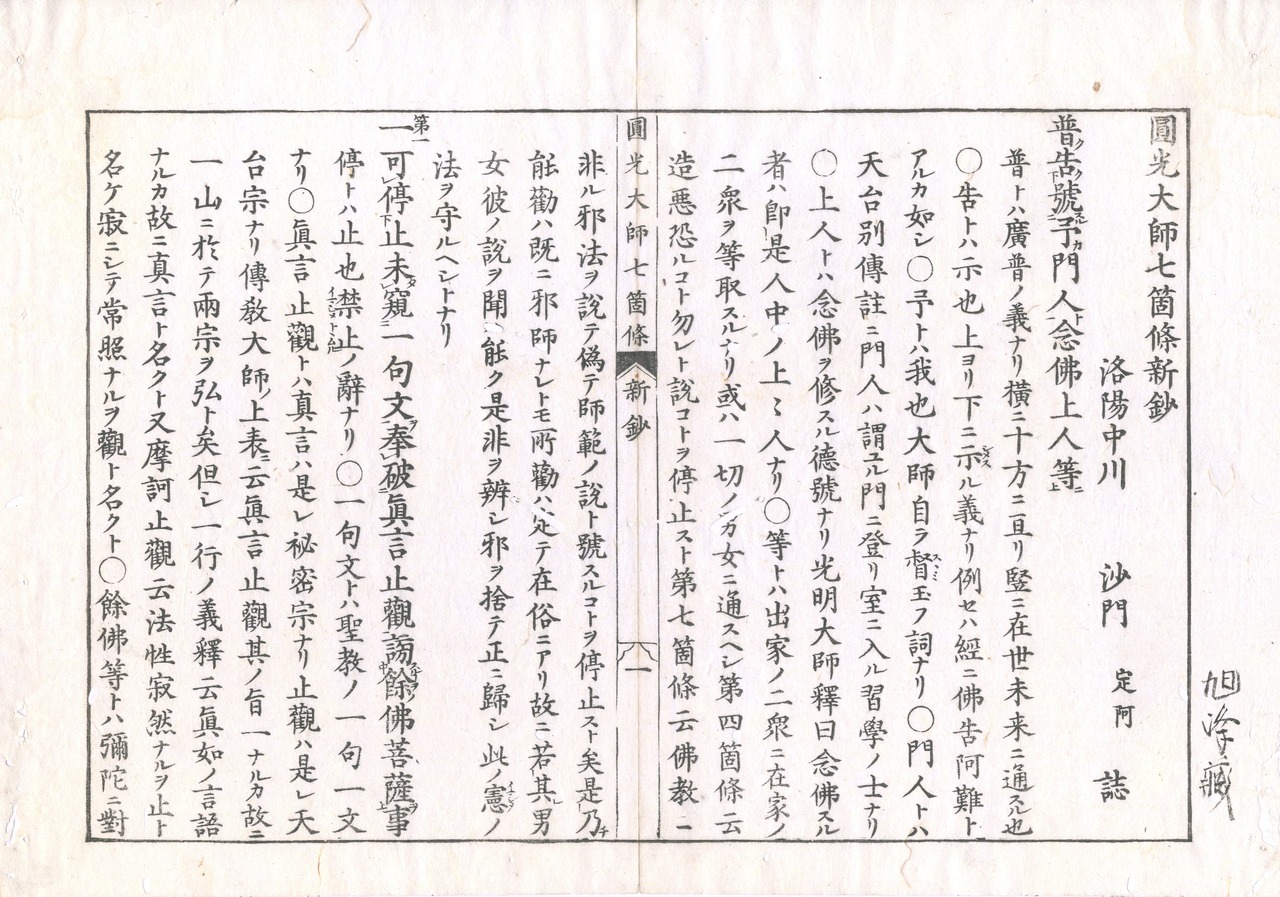 圓光大師七箇條新鈔
洛陽中川 沙門 定阿 誌
普ノ告ノ下號スル予カ門人ト念佛上人等ニ上
普トハ廣普ノ義ナリ橫ニ十方ニ亘リ竪ニ在世末来ニ通スル也
〇告トハ示也上ヨリ下ニ示シメスル義ナリ例セハ經ニ佛告阿難ト
アルカ如シ〇予トハ我也大師自ラ督玉フ詞ナリ〇門人トハ
天台別傳註ニ門人ハ謂ユル門ニ登リ室ニ入ル習學ノ士ナリ
〇上人トハ念佛ヲ修スル德號ナリ光明大師釋曰念佛スル
者ハ卽是人中ノ上〻人ナリ〇等トハ出家ノ二衆ニ在家ノ
二衆ヲ等取スルナリ或ハ一切ノ女ニ通スヘシ第四箇條云
造悪恐ルコト勿レト說コトヲ停止スト第七箇條云佛教ニ
圓光大師七箇條 新鈔 一
非ル邪法ヲ說テ偽テ師範ノ說ト號スルコトヲ停止スト矣是乃チ
能勸ハ既ニ邪師ナレトモ所勸ハ定テ在俗ニアリ故ニ若其レ男
女彼ノ說ヲ聞能ク是非ヲ辨シ邪ヲ捨テ正ニ歸シ此ノ憲ノ
法ヲ守ルヘシトナリ
第一
一可停下止未タ窺ニ一句文ヲ奉破眞言止觀謗中餘佛菩薩ヲ上事
停トハ止也禁止ノ辭ナリ〇一句文トハ聖教ノ一句一文
ナリ〇眞言止觀トハ真言ハ是レ祕密宗ナリ止觀ハ是レ天
台宗ナリ傳教大師ノ上表ニ云眞言止觀其ノ旨一ナルカ故ニ
一山ニ於テ兩宗ヲ弘ト矣但シ一行ノ義釋云眞如ノ言語
ナルカ故ニ真言ト名クト又摩訶止觀云法性寂然ナルヲ止ト
名ケ寂ニシテ常照ナルヲ觀ト名クト〇餘佛等トハ彌陀ニ對
旭
藏